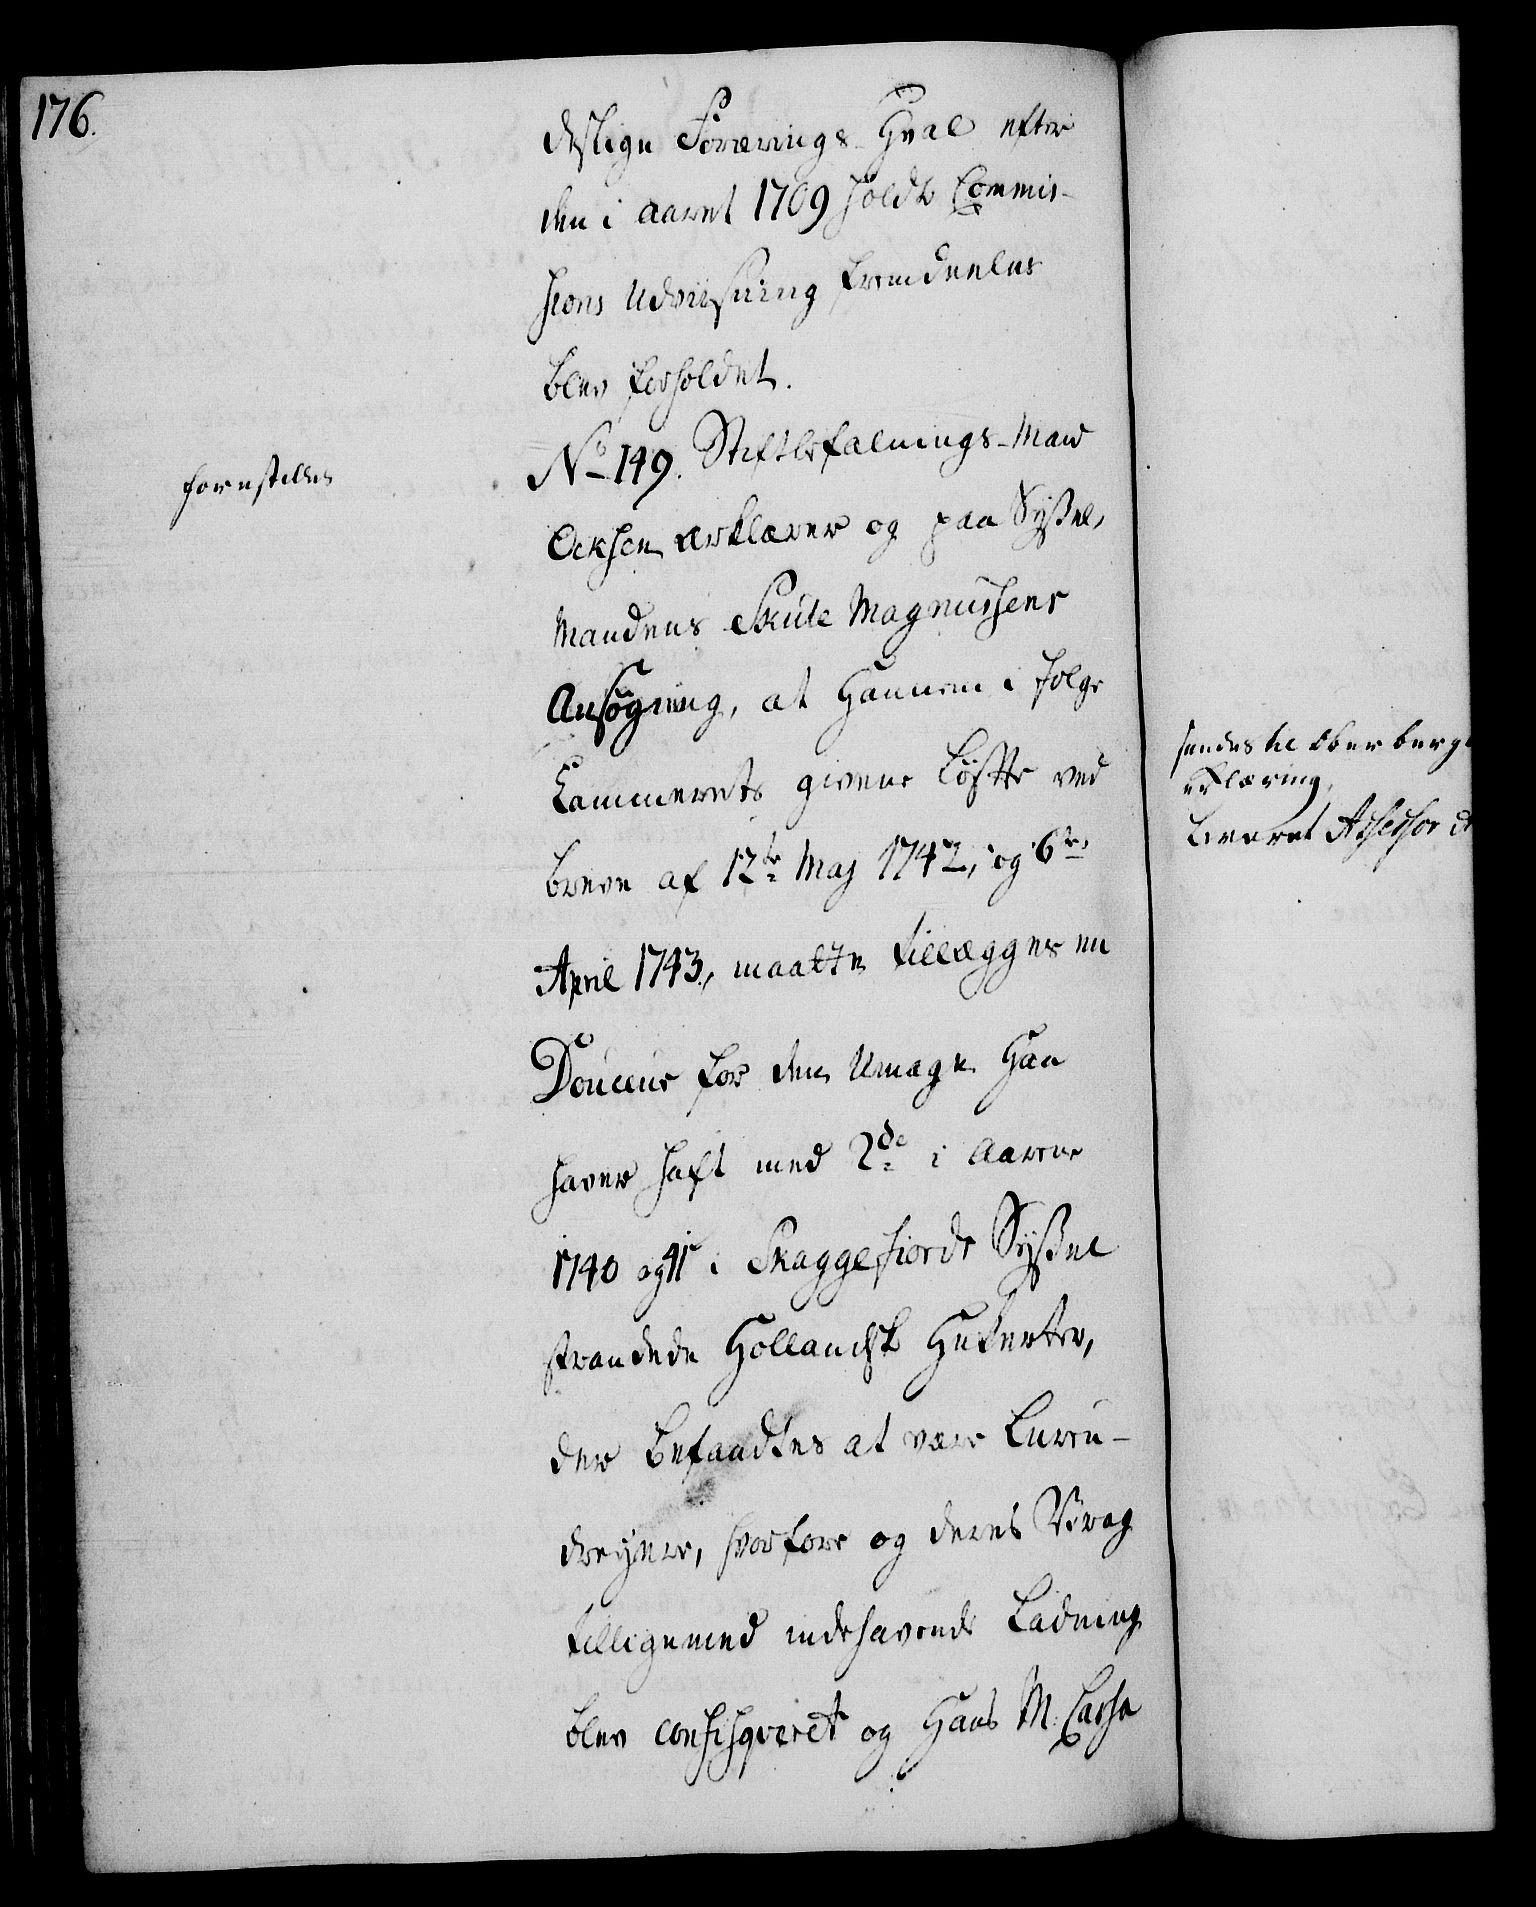 176.
deslige Forærings Hval efter
den i Aaret 1709 holdte Commis-
sions Udviisning fremdeeles
blev forholdet.
No 149. Stiftbefalnings-Mand
forestilles
Ocksen erklærer og paa Syssel,
Mandens Skule Magnussens
Ansögning, at Hannem i følge
Cammerets givene Löfte ved
breve af 12te Maj 1742, og 6te
April 1743, maatte tillægges en
Douceur for den Umage Han
haver haft med 2de i Aarene
1740 og 41 i Skaggefiords Syssel
strandede Hollandsk Hukerter,
der befandtes at være Luren-
dreyere, hvorfore og deres Vrag
tilligemed indehavende Ladning
blev confisqveret og Hans M. Cassa
sendes til Ober berg
erklæring,
leveret Assessor